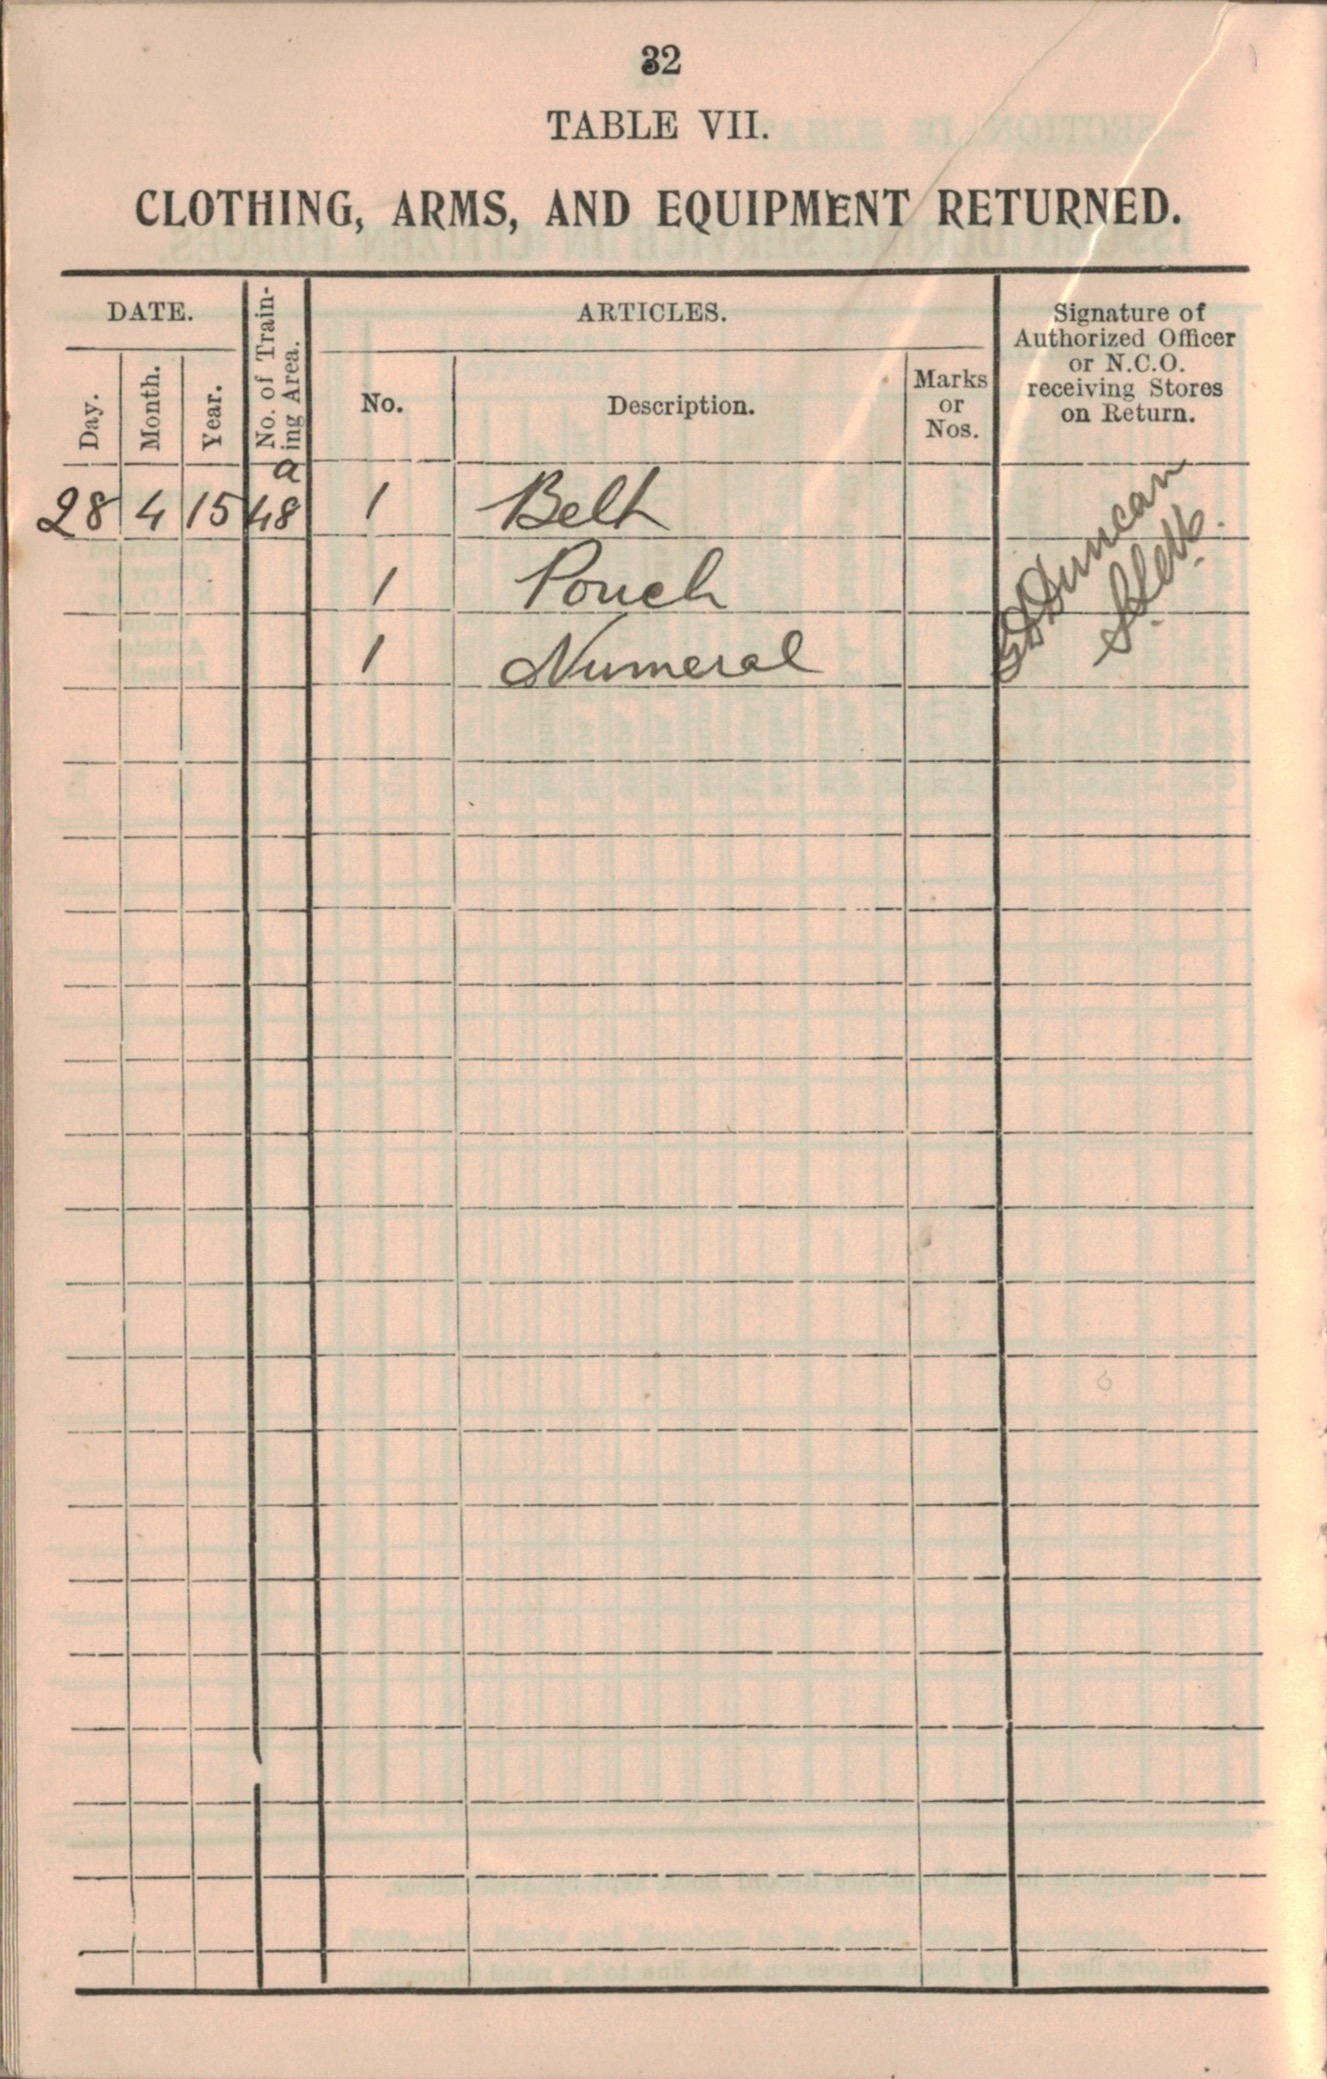 32
TABLE VII.
CLOTHING, ARMS, AND EQUIPMENT RETURNED.
DATE.
No. of Train-
ing Area.
ARTICLES.
Signature of
Authorized Officer
or N.C.O.
receiving Stores
on Return.
Day.
Month.
Year.
No.
Description.
Marks
or
Nos.
28 4 15 48a 1 Belt
1 Pouch
1 Numeral
Duncan